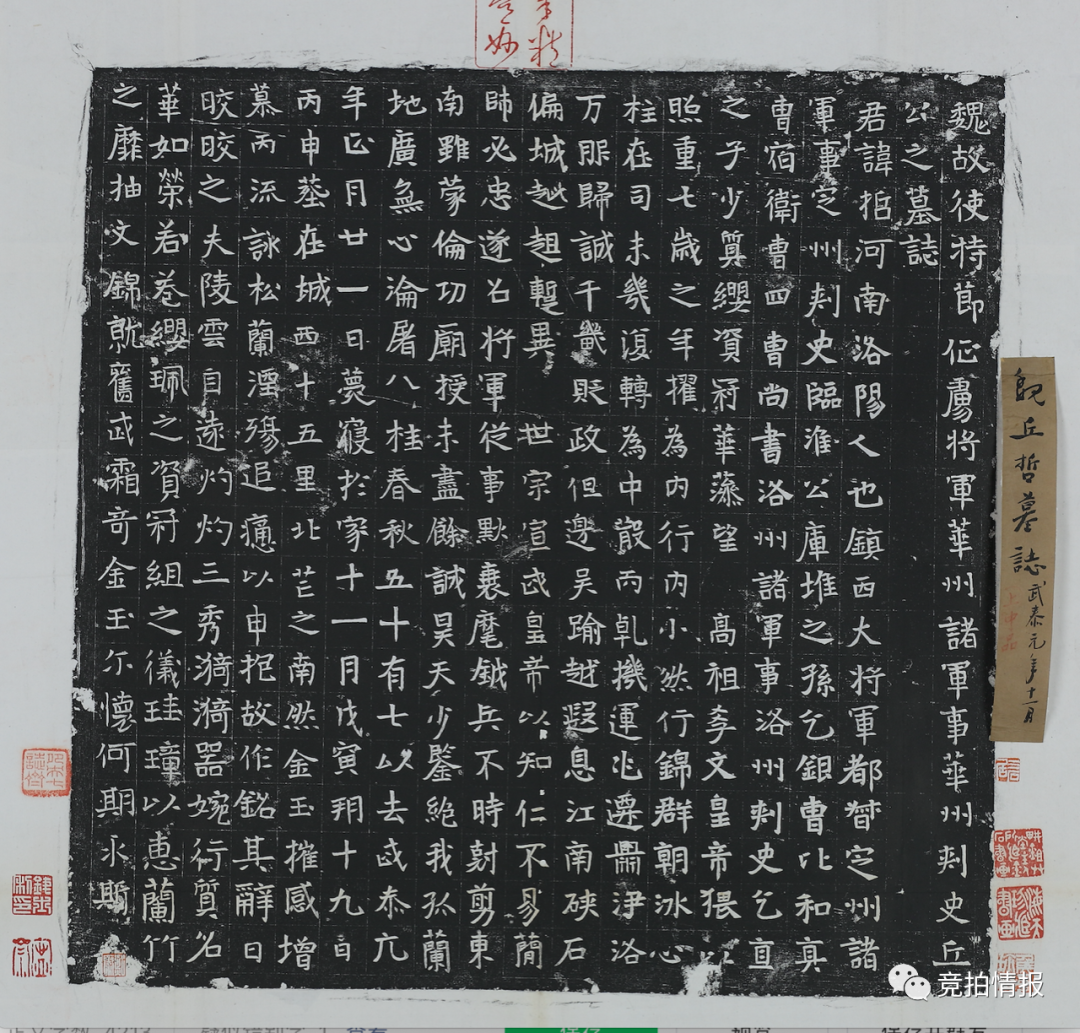 魏故使持節征虜將軍華州諸軍事華州刺史丘
公之墓誌
君諱哲河南洛陽人也鎮西大將軍都督定州諸
軍事定州刺史臨淮公庫堆之孫乞銀曹比和真
曹宿衛曹四曹尚書洛州諸軍事洛州刺史乞直
之子少質纓資冠華藻望高祖孝文皇帝猥以
照重七歲之年擢為內行內小然行錦群朝冰心
柱在司未幾復轉為中散丙乹機運兆遷鼎洢洛
万服歸誠千畿賑政但邊吳踰越遐息江南硤石
偏城越趄蹔異世宗宣武皇帝以知仁不易蕳
師必忠遂召將軍從事默襄麾鉞兵不時對剪東
南雖蒙倫功廟授未盡餘誠昊天少鑒絶我孤蘭
地廣無心淪屠八桂春秋五十有七以去武泰亢
年正月廿一日薨寢於家十一月戊寅朔十九日
丙申塟在城西十五里北芒之南然金玉摧感增
慕丙流詠松蘭湮殤追痛以申抱故作銘其辭曰
晈晈之夫陵雲自遠灼灼三秀猗猗器婉行質名
華如榮若卷纓珮之資冠組之儀珪璋以惠蘭竹
之靡抽文錦就舊武霜奇金玉尓懷何期永斯
魏丘哲墓誌武泰元年十一月
精
妙
竞拍情报